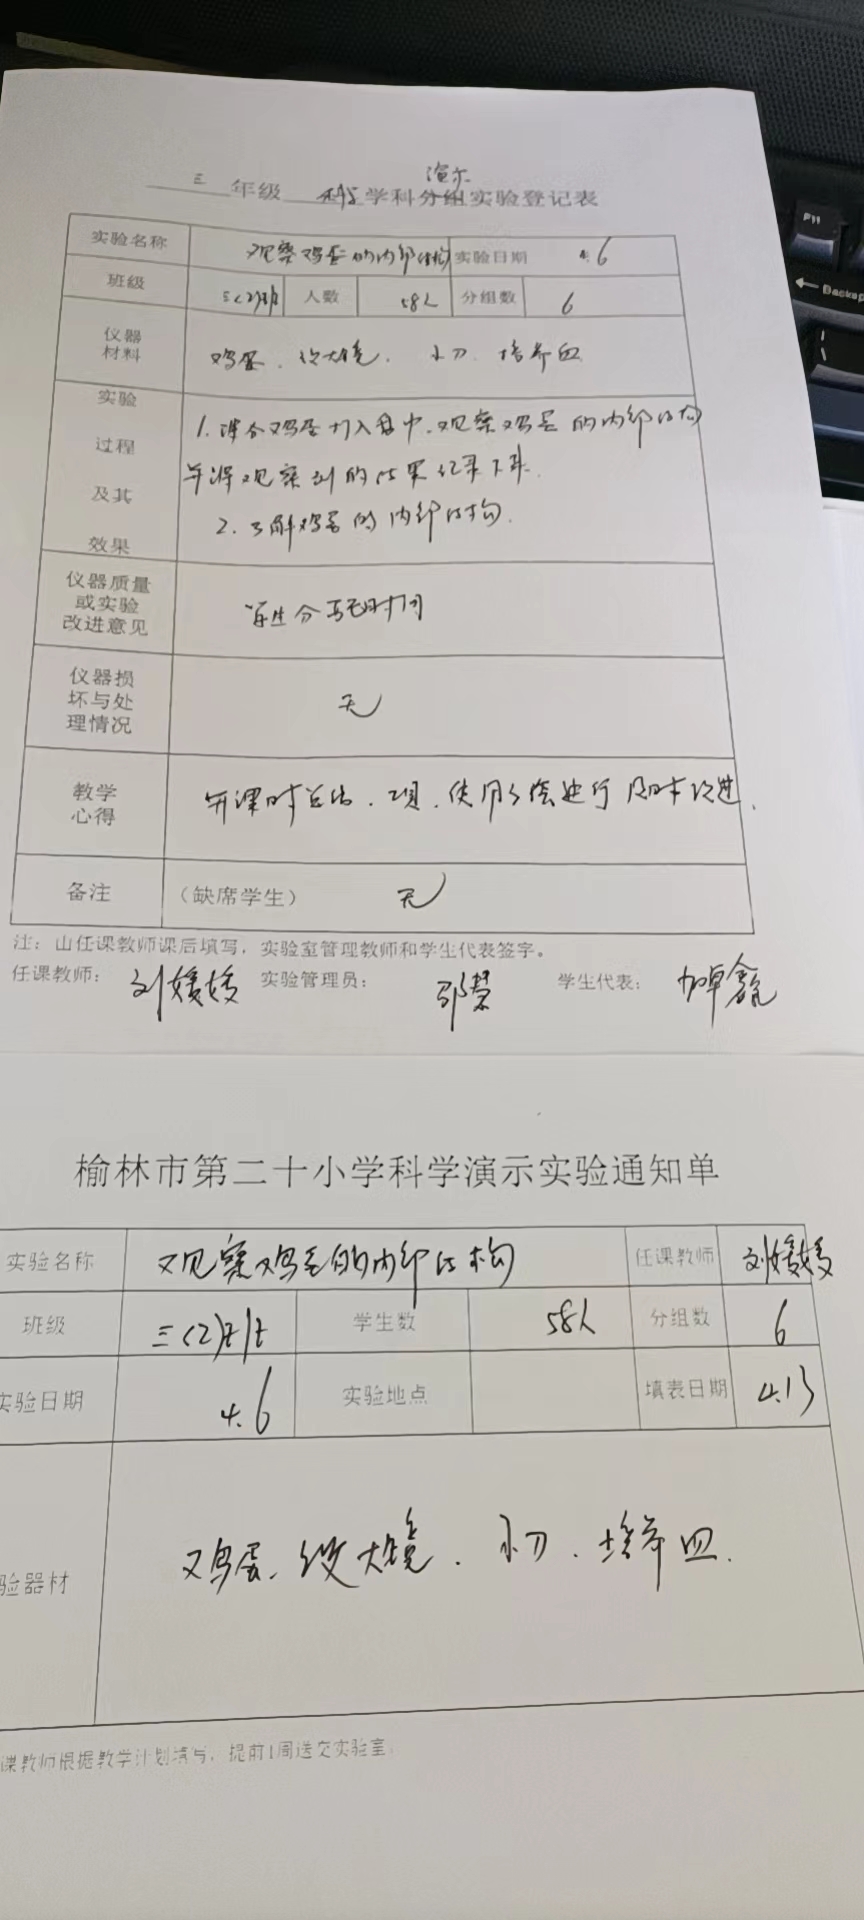 演示
三 年级 科学 学科分组实验登记表
实验名称 观察鸡蛋的内部结构 实验日期 4.6
班级 三(2)班 人数 58人 分组数 6
仪器材料 鸡蛋、放大镜、小刀、培养皿
实验过程及其效果
1.课合鸡蛋打入盘中,观察鸡蛋的内部结构
并将观察到的结果记录下来.
2.了解鸡蛋的内部结构.
仪器质量或实验改进意见
仪器损坏与处理情况 无
教学心得
备注 (缺席学生) 无
注:由任课教师课后填写,实验室管理教师和学生代表签字。
任课教师: 刘媛媛 实验管理员: 邵慧 学生代表:
榆林市第二十小学科学演示实验通知单
实验名称 观察鸡蛋的内部结构 任课教师 刘媛媛
班级 三(2)班 学生数 58人 分组数 6
实验日期 4.6 实验地点 填表日期 4.13
验器材 鸡蛋、放大镜、小刀、培养皿.
课教师根据教学计划填写,提前1周送交实验室
P11
Backsp